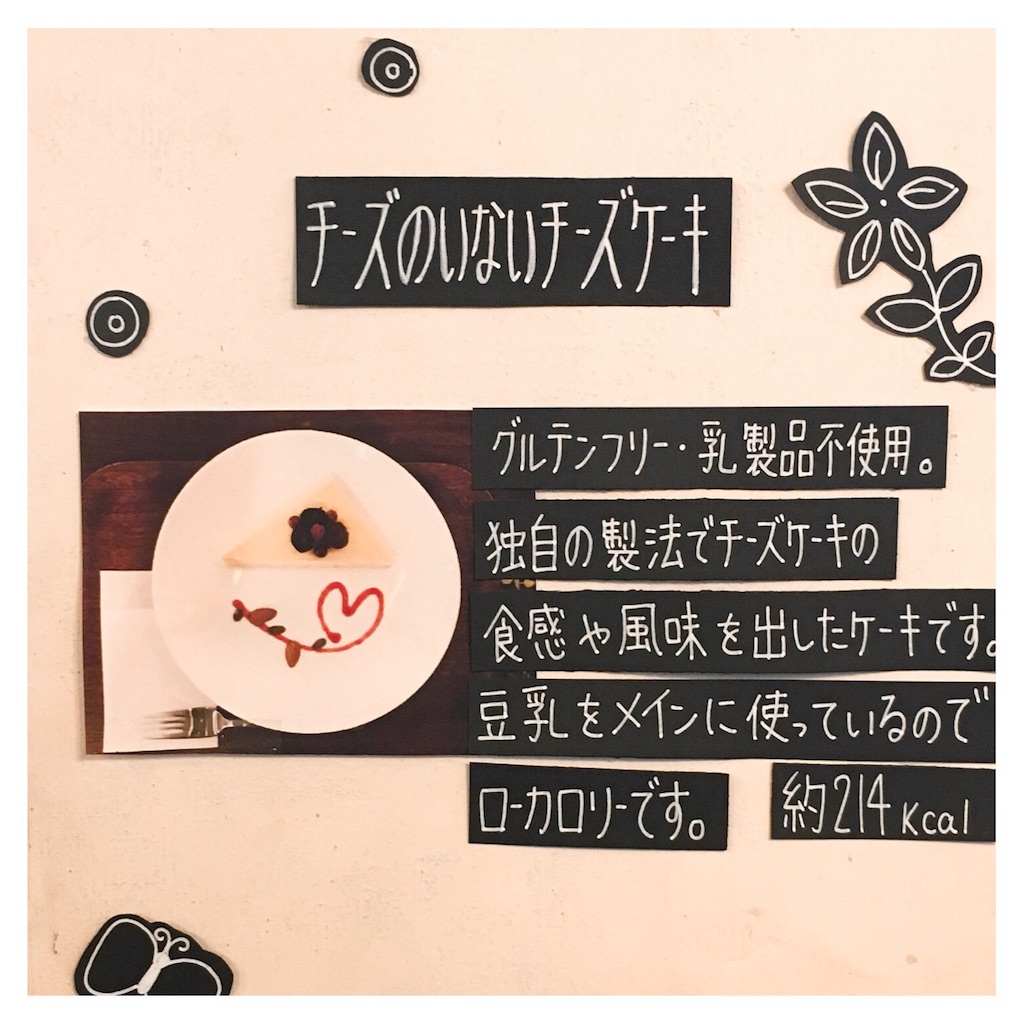 チーズのいないチーズケーキ
グルテンフリー・乳製品不使用。
独自の製法でチーズケーキの
食感や風味を出したケーキです。
豆乳をメインに使っているので
ローカロリーです。 約214Kcal